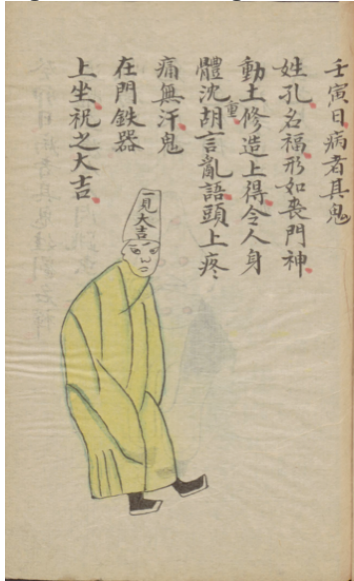 壬寅日病者其鬼
姓孔名福形如喪門神
動土修造上得令人身
體沈重胡言亂語頭上疼
痛無汗鬼
在門鉄器
上坐祝之大吉
一見大吉